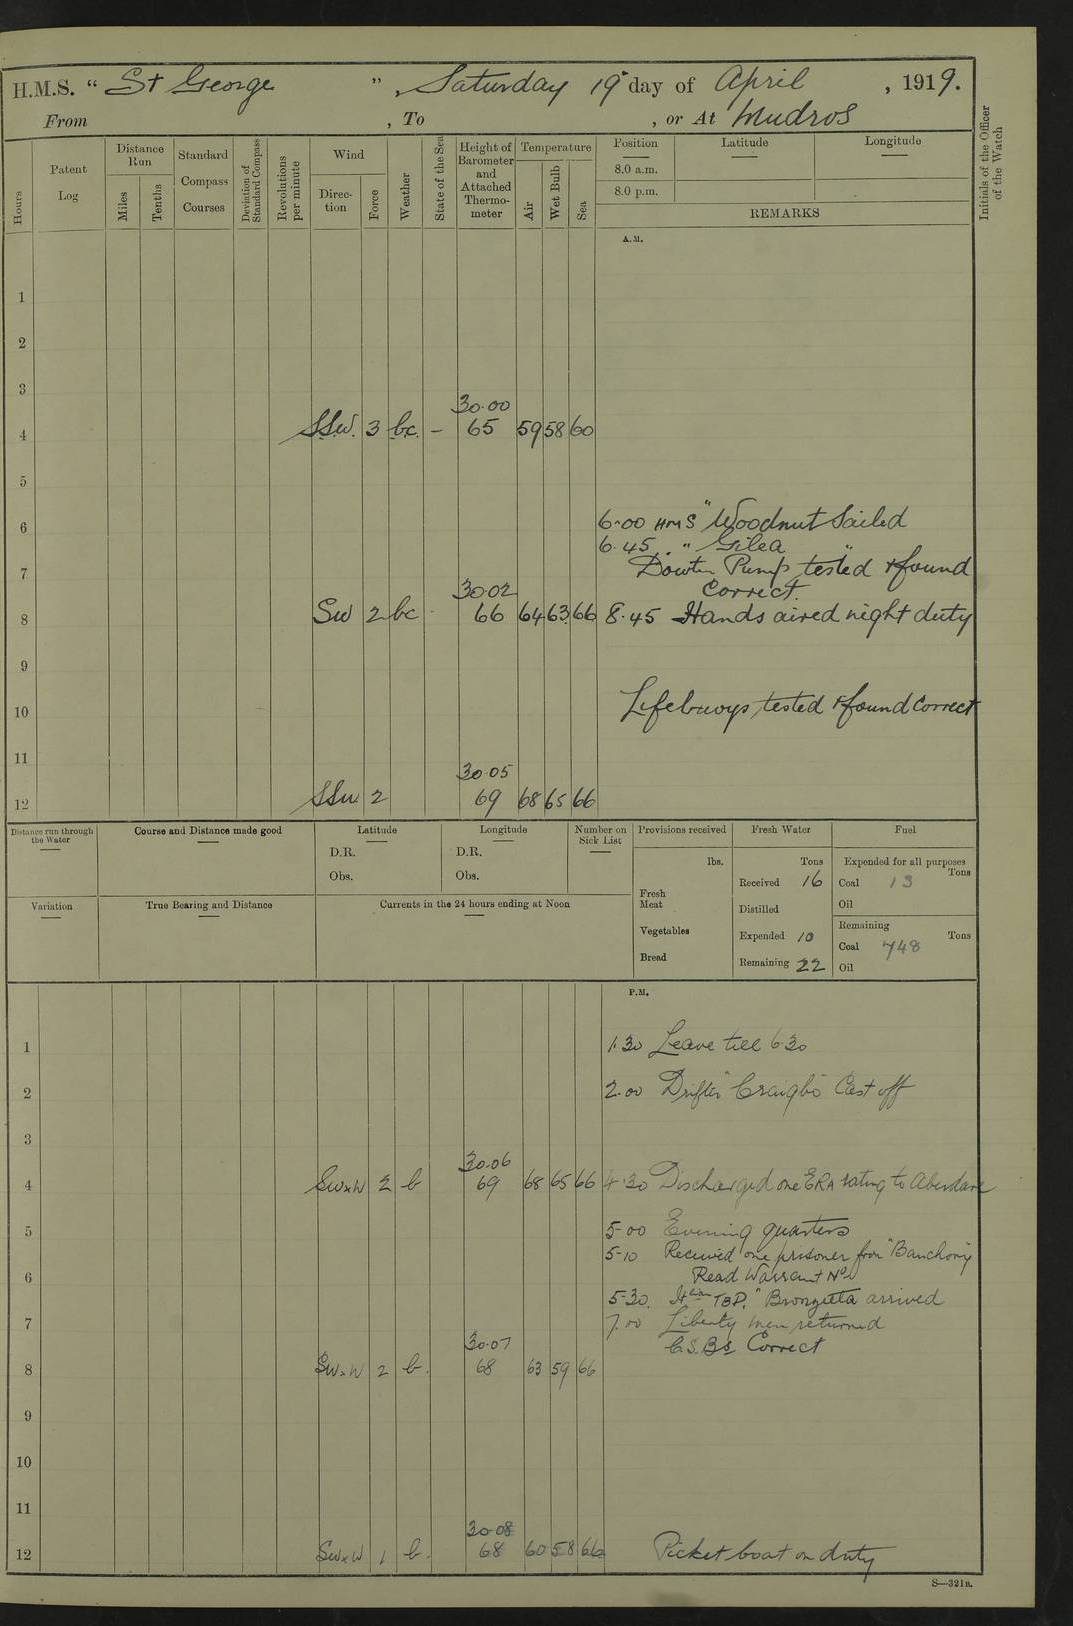 H.M.S. “ St George ” , Saturday 19 day of April , 1919.
From , To , or At Mudros
Hours
Patent Log
Distance Run
Miles
Tenths
Standard Compass Courses
Deviation of Standard Compass
Revolutions per minute
Wind
Direction
Force
Weather
State of the Sea
Height of Barometer and Attached Thermometer
Temperature
Air
Wet Bulb
Sea
Position
8.0 a.m.
8.0 p.m.
Latitude
Longitude
REMARKS
Initials of the Officer of the Watch
A.M.
1
2
3
30.00
4 SSW. 3 bc. – 65 59 58 60
5
6 6.00 HMS "Woodnut Sailed
6.45 " " Gilea "
7 Downton Pump tested & found
correct.
30.02
8 SW 2 bc 66 64 63 66 8.45 Hands aired night duty
9
10 Lifebuoys tested & found correct
11
30.05
12 SSW 2 69 68 65 66
Distance run through the Water
Course and Distance made good
Latitude
D.R.
Obs.
Longitude
D.R.
Obs.
Number on Sick List
Provisions received
lbs.
Fresh Meat
Vegetables
Bread
Fresh Water
Tons
Received 16
Distilled
Expended 10
Remaining 22
Fuel
Expended for all purposes
Tons
Coal 13
Oil
Remaining
Tons
Coal 748
Oil
Variation
True Bearing and Distance
Currents in the 24 hours ending at Noon
P.M.
1 1.30 Leave till 6.30
2 2.00 Drifter "Craigbo" Cast off
3
30.06
4 SWxW 2 b 69 68 65 66 4.30 Discharged one ERA rating to Aberdare
5 5.00 Evening quarters
5.10 Received one prisoner from "Banchory"
6 Read Warrant No
5.30. Itln TBD. "Bronzetta arrived
7 7.00 Liberty men returned
30.07 C.S.Bs Correct
8 SWxW 2 b. 68 63 59 66
9
10
11
30.08
12 SWxW 1 b. 68 60 58 66 Picket boat on duty
S—321B.